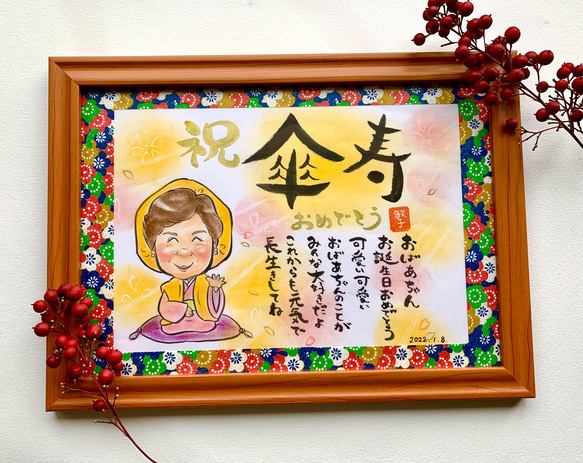 祝 傘寿
おめでとう
敏子
おばあちゃん
お誕生日おめでとう
可愛い可愛い
おばあちゃんのことが
みんな大好きだよ
これからも元気で
長生きしてね
2022.1.8.